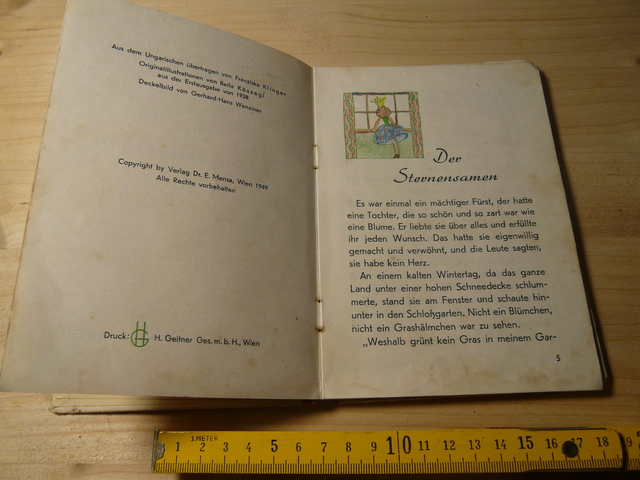 Aus dem Ungarischen übertragen von Franziska Klinger
Originalillustrationen von Bella Köszegi
aus der Erstausgabe von 1928
Deckelbild von Gerhard-Hans Wenziner
Copyright by Verlag Dr. E. Mensa, Wien 1949
Alle Rechte vorbehalten
Druck: HG H. Geitner Ges. m. b. H., Wien
Der
Sternensamen
Es war einmal ein mächtiger Fürst, der hatte
eine Tochter, die so schön und so zart war wie
eine Blume. Er liebte sie über alles und erfüllte
ihr jeden Wunsch. Das hatte sie eigenwillig
gemacht und verwöhnt, und die Leute sagten,
sie habe kein Herz.
An einem kalten Wintertag, da das ganze
Land unter einer hohen Schneedecke schlum-
merte, stand sie am Fenster und schaute hin-
unter in den Schloßgarten. Nicht ein Blümchen,
nicht ein Grashälmchen war zu sehen.
„Weshalb grünt kein Gras in meinem Gar-
5
1 METER
1 2 3 4 5 6 7 8 9 10 11 12 13 14 15 16 17 18 19